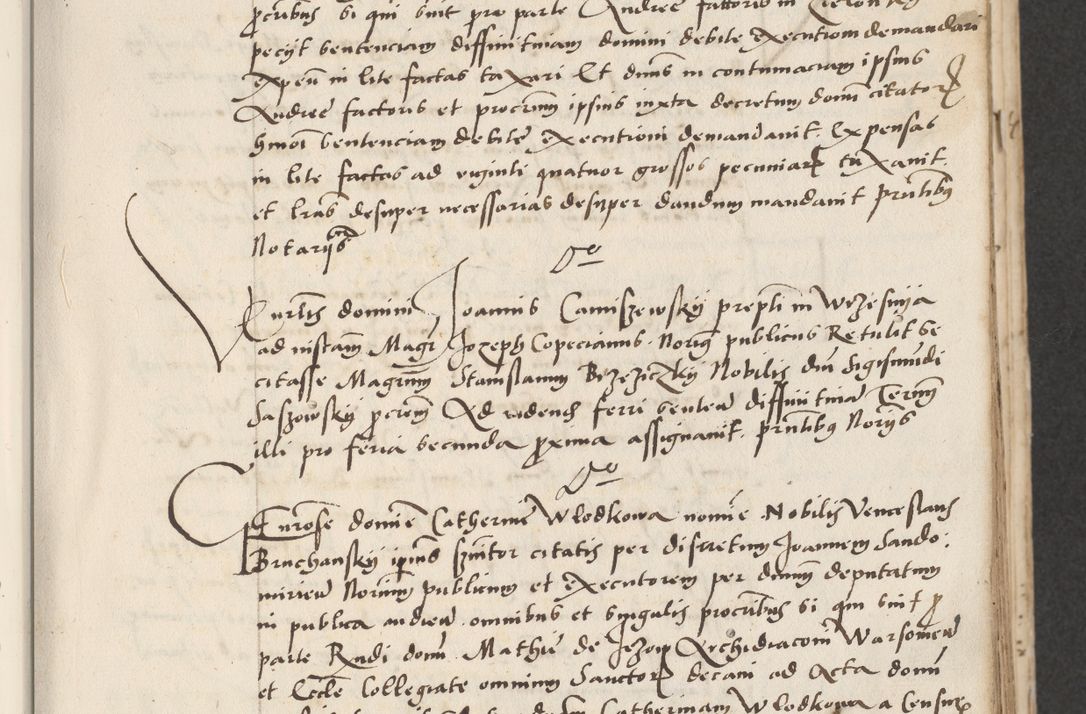 procribus si qui sint pro parte Andree factoris in
peciyt sentenciam diffinitivam domini debite executioni demandari
expensas in lite factas taxari Et dnus in contumaciam ipsius
Andree factoris et procrum ipsius iuxta decretum domi citator
hmoi sentenciam debite executioni demandavit. Expensas
in lite factas ad viginti quatuor grossos pecuniar taxavit
et lras desuper necessarias desuper dandum mandavit prntibus
Notariis
Do
domini Joannis Camiszewsky prepti in Wrzesnija
ad instam Magri Jozeph Copecianus Noriq publicus Retulit se
citasse Magrum Stanislaum Brzeziczky Nobilis dni Sigismundi
Saszowsky procrem Ad videndum ferri senten diffinitivam Termin
illi pro feria secunda proxima assignavit. prntibus Noriis
Do
Generose domine Catherine Wlodkowa nomine Nobilis Venceslaus
Bruchansky ipsius citatis per discretum Joannem Sando
mirien Norium publicum et executorem per dnum deputatum
in publica audien omnibus et singulis procribus si qui sint pro
parte Rndi domi Mathie de Jezow Archidiaconi Warsovien
et Eccle Collegiate omnium Sanctor decani ad Acta domi
Catherinam Wlodkowa a Censur